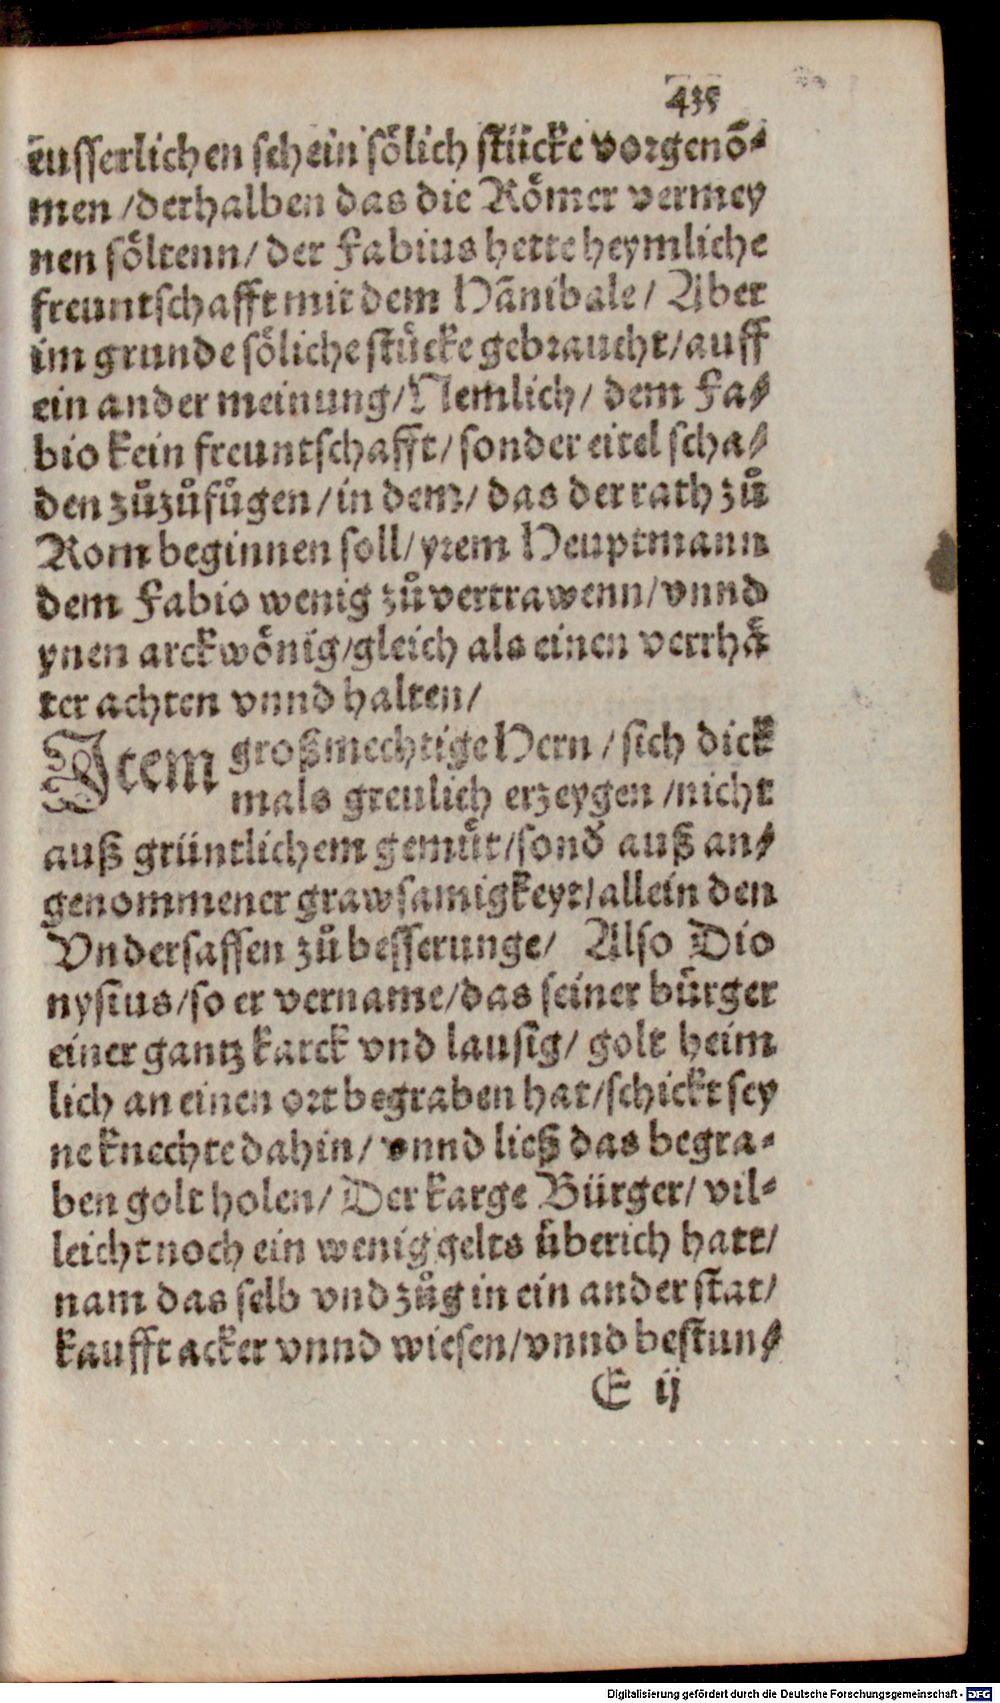 435
eusserlichen schein soͤlich stuͤcke vorgenō-
men /derhalben das die Roͤmer vermey
nen soͤltenn/ der Fabius hette heymliche
freuntschafft mit dem Hānibale/ Aber
im grunde soͤliche stuͤcke gebraucht/auff
ein ander meinung/Nemlich/ dem Fa-
bio kein freuntschafft/ sonder eitel scha-
den zůzůfuͤgen/in dem/ das der rath zů
Rom beginnen soll/yrem Heuptmann
dem Fabio wenig zůvertrawenn/vnnd
ynen arckwoͤnig/gleich als einen verrhaͤ
ter achten vnnd halten/
Item großmechtige Hern / sich dick
mals greulich erzeygen /nicht
auß gruͤntlichem gemuͤt/sond̄ auß an-
genommener grawsamigkeyt/allein den
Vndersassen zů besserunge/ Also Dio
nysius/so er vername/das seiner buͤrger
einer gantz karck vnd lausig/ golt heim
lich an einen ort begraben hat/schickt sey
ne knechte dahin/ vnnd ließ das begra-
ben golt holen/ Der karge Buͤrger/ vil-
leicht noch ein wenig gelts uͤberich hatt/
nam das selb vnd zůg in ein ander stat/
kaufft acker vnnd wiesen/vnnd bestun-
E ij
Digitalisierung gefördert durch die Deutsche Forschungsgemeinschaft - DFG